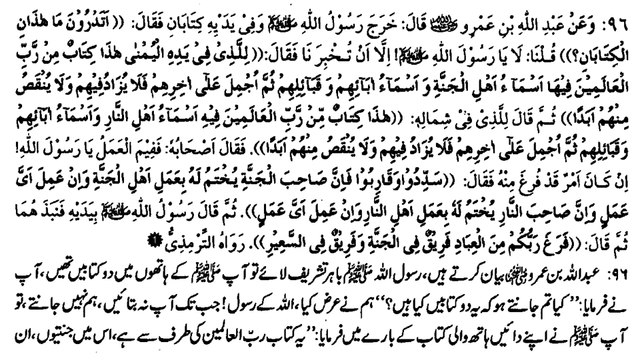 ٩٦: وَعَنْ عَبْدِ اللّٰهِ بْنِ عَمْرٍو ؓ قَالَ: خَرَجَ رَسُوْلُ اللّٰهِ ﷺ وَفِيْ يَدَيْهِ كِتَابَانِ فَقَالَ: ((اَتَدْرُوْنَ مَا هٰذَانِ
الْكِتَابَانِ؟)) قُلْنَا: لَا يَا رَسُوْلَ اللّٰهِ ﷺ! اِلَّا اَنْ تُخْبِرَ نَا فَقَالَ: ((لِلَّذِيْ فِيْ يَدِهِ الْيُمْنٰى هٰذَا كِتَابٌ مِنْ رَّبِّ
الْعَالَمِيْنَ فِيْهَا اَسْمَآءُ اَهْلِ الْجَنَّةِ وَ اَسْمَآءُ ابَآئِهِمْ وَ قَبَائِلِهِمْ ثُمَّ اُجْمِلَ عَلٰى اٰخِرِهِمْ فَلَا يُزَادُ فِيْهِمْ وَلَا يُنْقَصُ
مِنْهُمْ اَبَدًا)) ثُمَّ قَالَ لِلَّذِيْ فِيْ شِمَالِهٖ: ((هٰذَا كِتَابٌ مِّنْ رَّبِّ الْعَالَمِيْنَ فِيْهِ اَسْمَآءُ اَهْلِ النَّارِ وَ اَسْمَآءُ ابَآئِهِمْ
وَقَبَائِلِهِمْ ثُمَّ اُجْمِلَ عَلٰى اٰخِرِهِمْ فَلَا يُزَادُ فِيْهِمْ وَلَا يُنْقَصُ مِنْهُمْ اَبَدًا)). فَقَالَ اَصْحَابُهٗ: فَفِيْمَ الْعَمَلُ يَا رَسُوْلَ اللّٰهِ!
اِنْ كَانَ اَمْرٌ قَدْ فُرِغَ مِنْهُ فَقَالَ: ((سَدِّدُوْا وَقَارِبُوْا فَاِنَّ صَاحِبَ الْجَنَّةِ يُخْتَمُ لَهٗ بِعَمَلِ اَهْلِ الْجَنَّةِ وَاِنْ عَمِلَ اَيَّ
عَمَلٍ وَاِنَّ صَاحِبَ النَّارِ يُخْتَمُ لَهٗ بِعَمَلِ اَهْلِ النَّارِ وَاِنْ عَمِلَ اَيَّ عَمَلٍ)). ثُمَّ قَالَ رَسُوْلُ اللّٰهِ ﷺ بِيَدَيْهِ فَنَبَذَ هُمَا
ثُمَّ قَالَ: ((فَرَغَ رَبُّكُمْ مِنَ الْعِبَادِ فَرِيْقٌ فِي الْجَنَّةِ وَفَرِيْقٌ فِي السَّعِيْرِ)). رَوَاهُ التِّرْمِذِيُّ
٩٦: عبداللہ بن عمرو ؓ بیان کرتے ہیں، رسول اللہ ﷺ باہر تشریف لائے تو آپ ﷺ کے ہاتھوں میں دو کتابیں تھیں، آپ
نے فرمایا: ”کیا تم جانتے ہو کہ یہ دو کتابیں کیا ہیں؟“ ہم نے عرض کیا، اللہ کے رسول! جب تک آپ نہ بتائیں، ہم نہیں جانتے، تو
آپ ﷺ نے اپنے دائیں ہاتھ والی کتاب کے بارے میں فرمایا: ”یہ کتاب رب العالمین کی طرف سے ہے، اس میں جنتیوں، ان